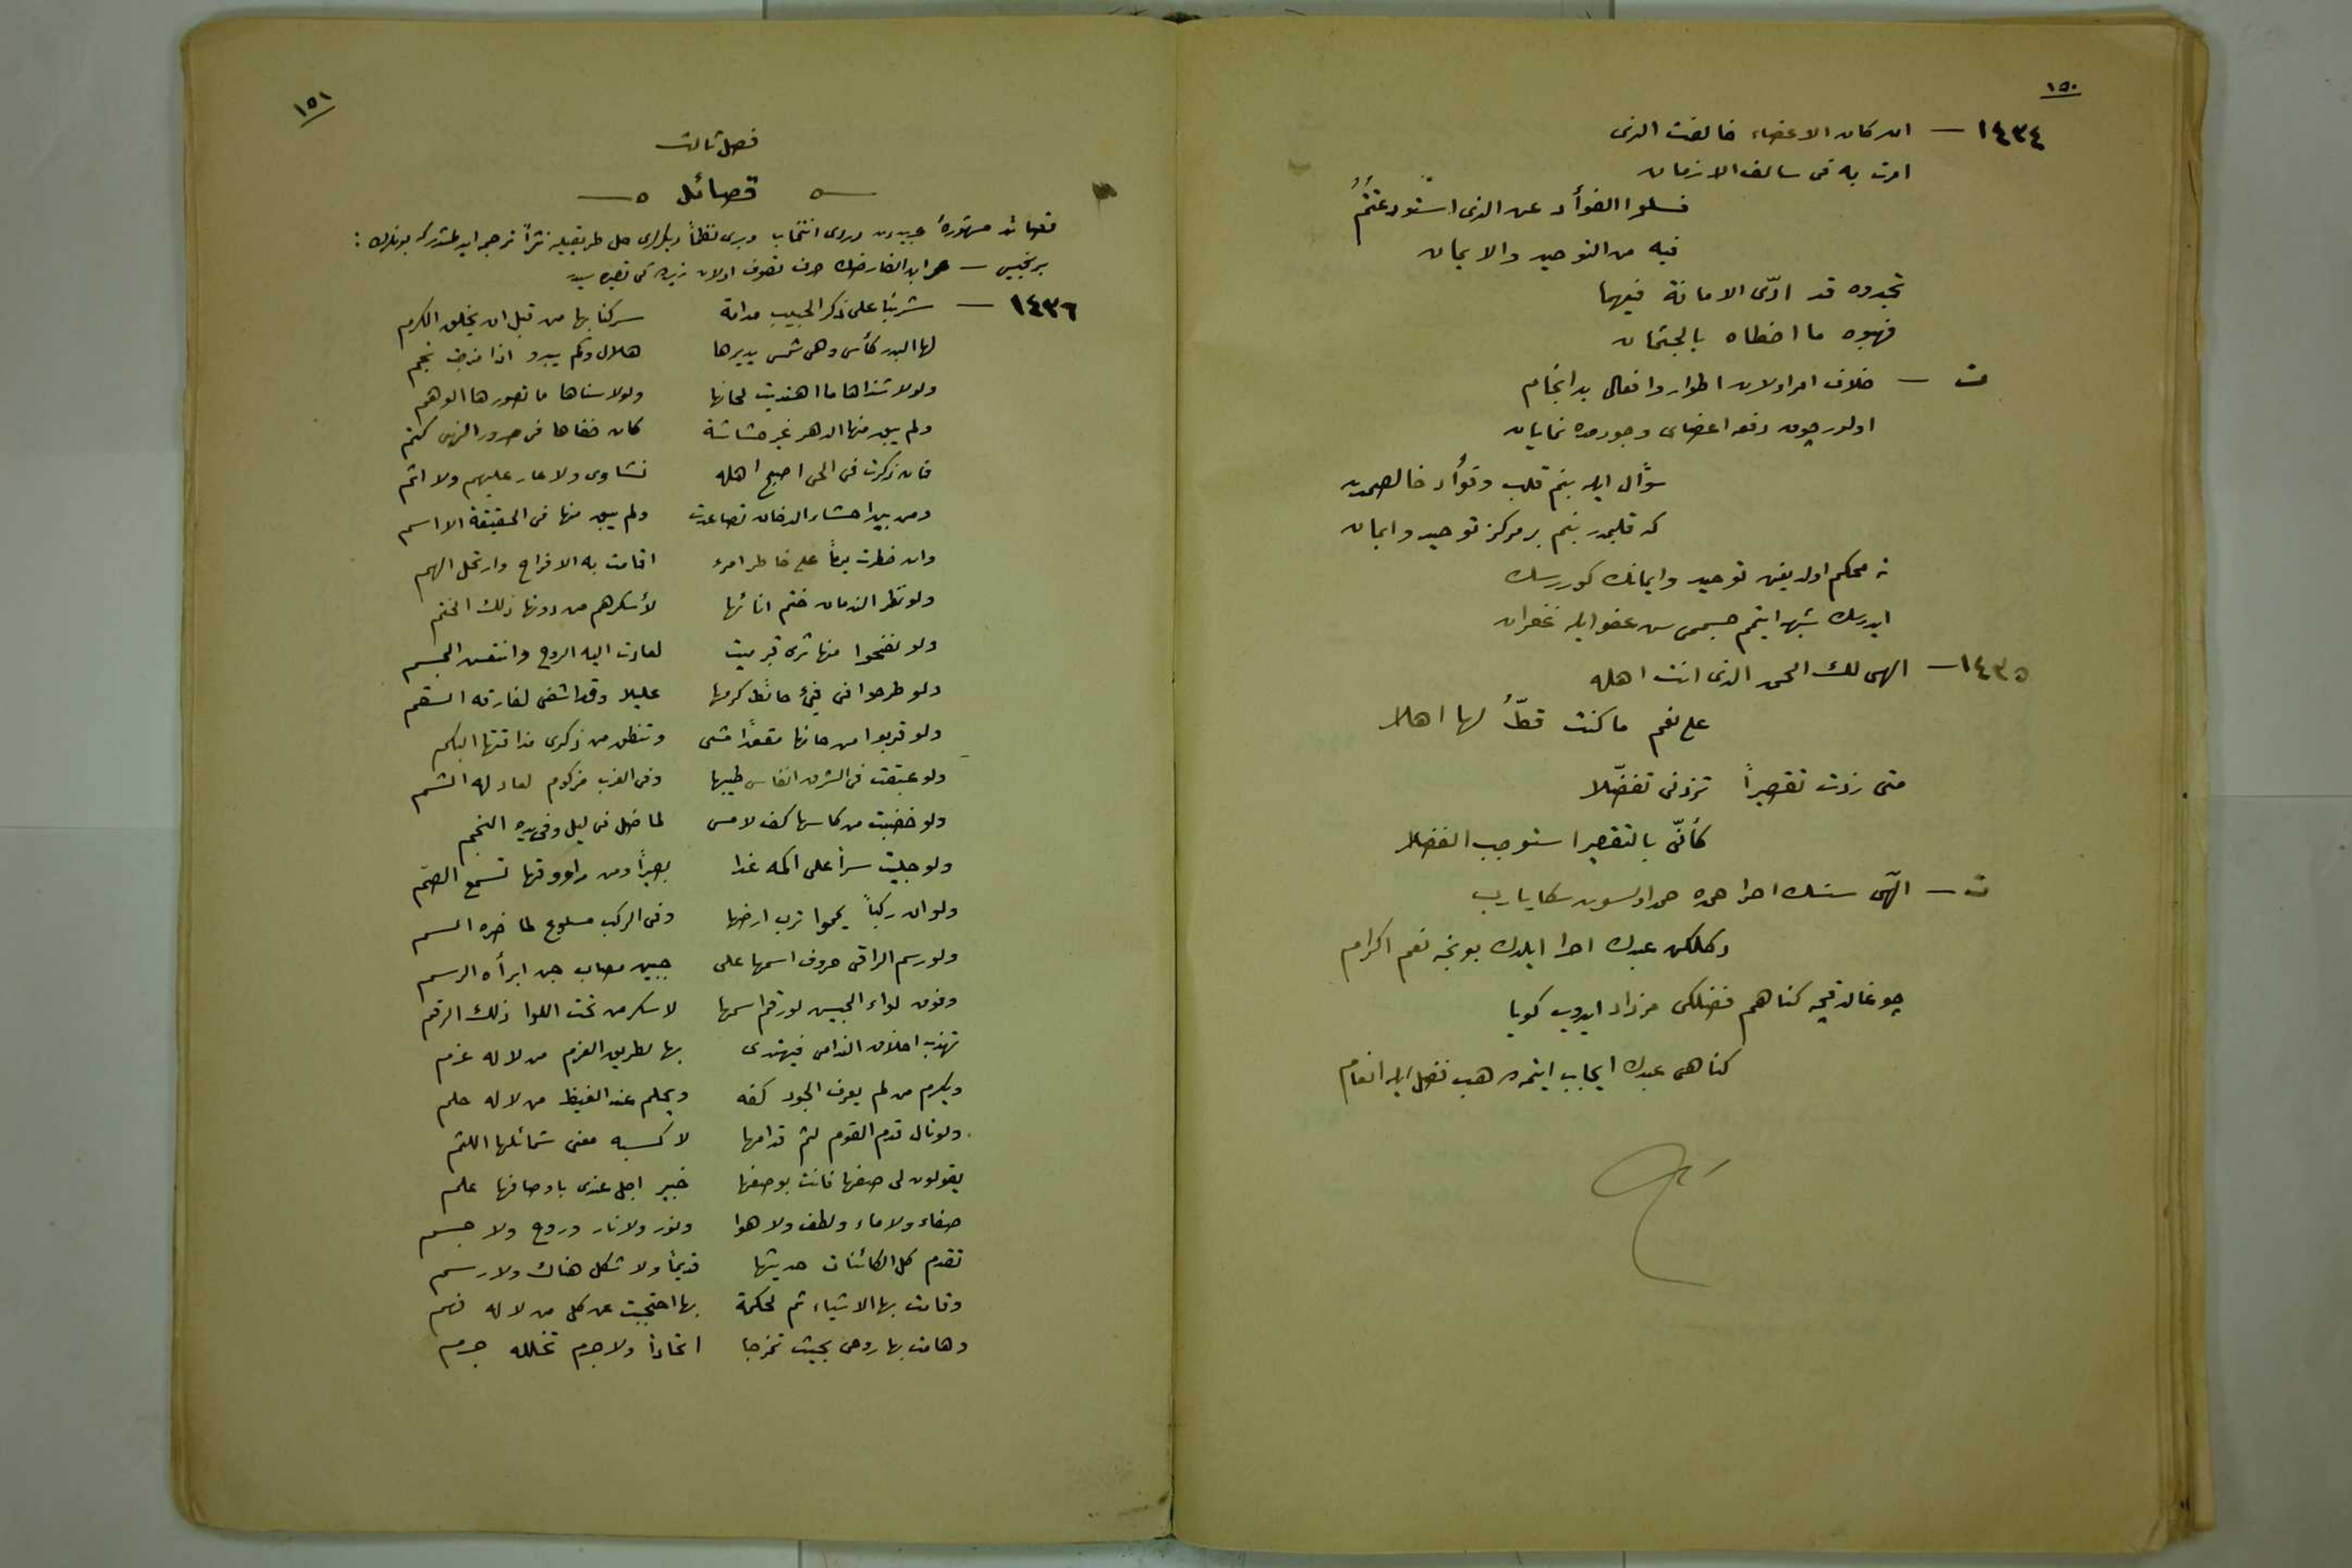 ١٥٠
١٤٣٤ — ان كان الاعضاء خالفت الذى
امرت به فى سالف الازمان
فسلوا الفوأد عن الذى استودعتمُ
فيه من التوحيد والايمان
تجدوه قد ادّى الامانة فيهما
فهبوه ما اخطاه بالجثمان
ت — خلاف امر اولان اطوار وافعالى بد انجام
اولور چون دفعه اعضاى وجودمده نمايان
سؤال ايله بنم قلب وفؤاد خالصمدن
كه قلبمدر بنم بر مركز توحيد وايمان
نه محكم اولديغن توحيد وايمانك كوررسك
ايدرسك شبهه ايتمم جسممى سن عفو ايله غفران
١٤٣٥ — الهى لك الحمد الذى انت اهله
على نعم ما كنت قطُّ لها اهلا
متى زدت تقصيراً تزدنى تفضّلا
كأنّى بالتقصير استوجب الفضلا
ت — الٓهى سنك احرا حمده حمد اولسون سكا يارب
دكلكن عبدك احرا ايلدك بونجه نعم اكرام
چوغالدقجه كناهم فضلكى مزداد ايدوب كويا
كناهى عبدك ايجاب ايتمده هب فضل ايله انعام
١٥١
فصل ثالث
قصائد
قصائد مشهورۀ عربيه‌دن دردى انتخاب وبرى نظماً ديكرلرى حل طريقيله نثراً ترجمه ايدلمشدركه بونلردر :
برنجيسى — عمر ابن الفارضك صرف تصوف اولان زيرده‌كى قصيده‌سيدر
١٤٣٦ — شربنا على ذكر الحبيب مدامة سكرنا بها من قبل ان يخلق الكرم
لها البدر كأس وهى شمس يديرها هلال وكم يبدو اذا مزجت نجم
ولولا شذاها ما اهتديت لحانها ولولا سناها ما تصورها الوهم
ولم يبق منها الدهر غير حشاشة كان خفاها فى صدور النهى كتم
فان ذكرت فى الحى اصبح اهله نشاوى ولا عار عليهم ولا اثم
ومن بين احشاء الدنان تصاعدت ولم يبق منها فى الحقيقة الا اسم
وان خطرت يوماً على خاطر امرء اقامت به الافراح وارتحل الهم
ولو نظر الندمان ختم انائها لأسكرهم من دونها ذلك الختم
ولو نضحوا منها ثرى قبر ميت لعادت اليه الروح وانتعش الجسم
ولو طرحوا فى فىء حائط كرمها عليلا وقد اشفى لفارقه السقم
ولو قربوا من حانها مقعداً مشى وتنطق من ذكرى مذاقتها البكم
ولو عبقت فى الشرق انفاس طيبها وفى الغرب مزكوم لعاد له الشم
ولو خضبت من كاسها كف لامس لما ضل فى ليل وفى يده النجم
ولو جليت سراً على اكمه غدا بصيراً ومن راووقها تسمع الصم
ولو ان ركباً يمموا ترب ارضها وفى الركب ملسوع لما ضره السم
ولو رسم الراقى حروف اسمها على جبين مصاب جن ابرأه الرسم
وفوق لواء الجيش لو رقم اسمها لاسكر من تحت اللوا ذلك الرقم
تهذب اخلاق الندامى فيهتدى بها لطريق العزم من لا له عزم
ويكرم من لم يعرف الجود كفه ويحلم عند الغيظ من لا له حلم
ولو نال قدم القوم لثم فدامها لاكسبه معنى شمائلها اللثم
يقولون لى صفها فانت بوصفها خبير اجل عندى باوصافها علم
صفاء ولا ماء ولطف ولا هوا ونور ولا نار وروح ولا جسم
تقدم كل الكائنات حديثها قديماً ولا شكل هناك ولا رسم
وقامت بها الاشياء ثم لحكمة بها احتجبت عن كل من لا له فهم
وهامت بها روحى بحيث تمازجا اتحاداً ولا جرم تخلله جرم